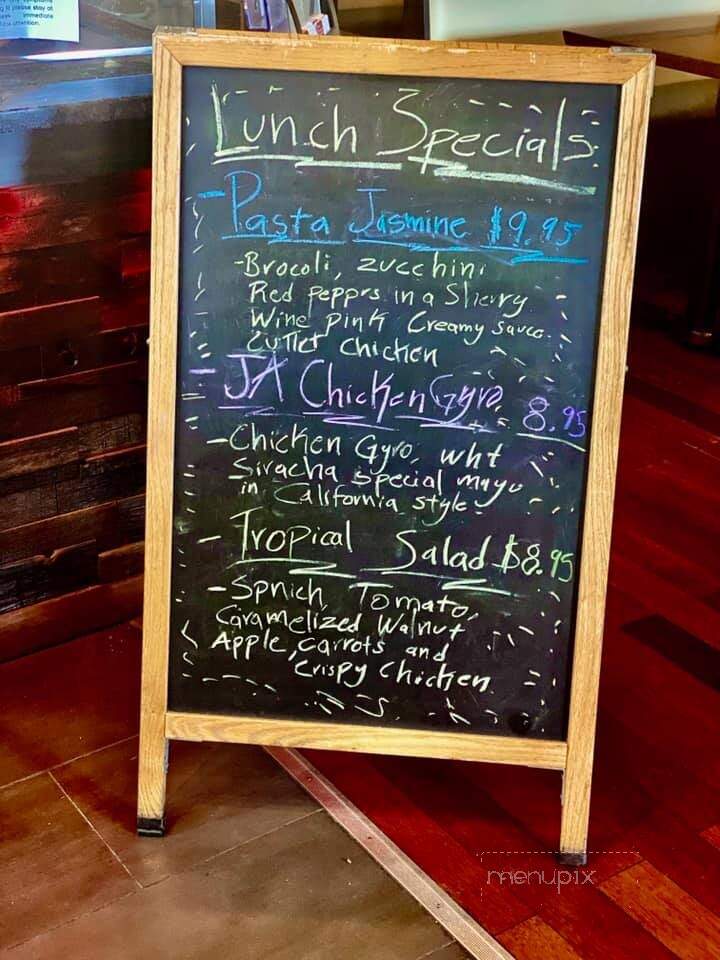 stay at
immediate
attention.
Lunch Specials
- Pasta Jasmine $9.95
- Brocoli, zucchini
Red Peppers in a Sherry
Wine Pink Creamy sauce
Cutlet Chicken
- JA Chicken Gyro 8.95
- Chicken Gyro, wht
Siracha special mayo
in California style -
- Tropical Salad $8.95
- Spnich Tomato,
Caramelized Walnut
Apple, Carrots and
Crispy Chicken
menupix